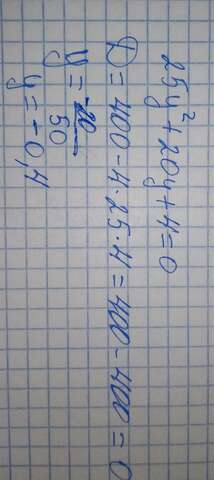 25y²+20y+4=0
D=400-4·25·4=400-400=0
y=-20/50
y=-0,4